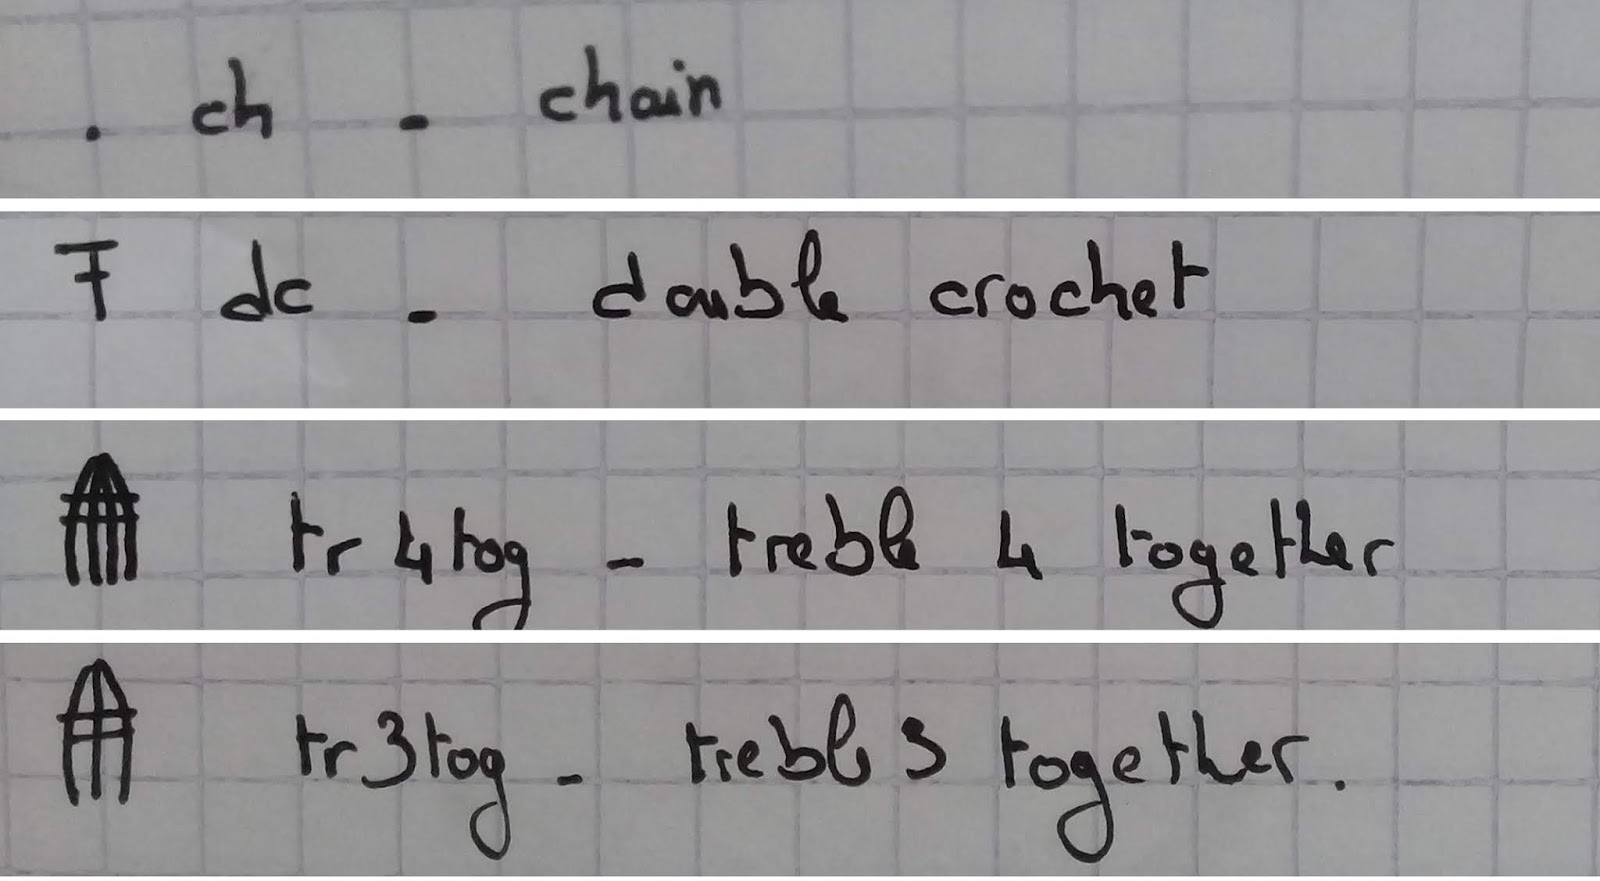 . ch - chain
dc - double crochet
tr 4 tog - treble 4 together
tr3tog - treble 3 together.